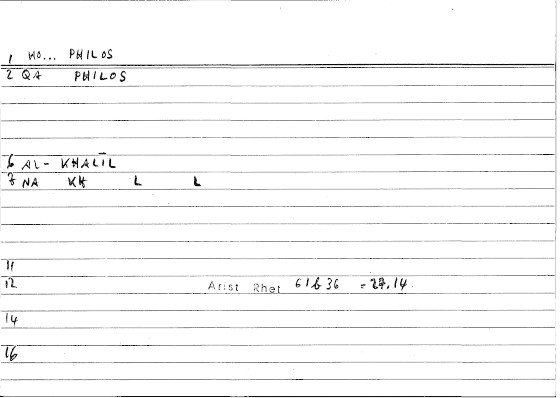 1 HO... PHILOS
2 QA PHILOS
6 AL- KHALĪL
7 NA KH L L
11
12 Arist Rhet 61b36 = 27,14.
14
16